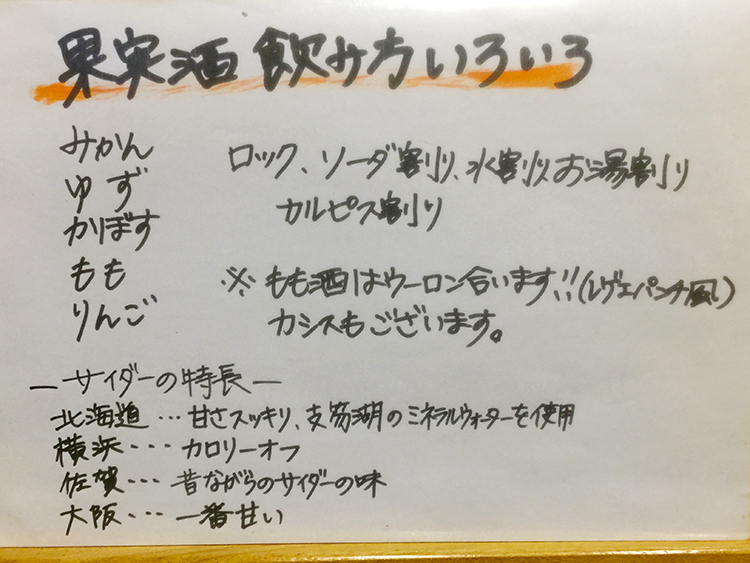 果実酒 飲み方いろいろ
みかん
ゆず
かぼす
もも
りんご
ロック、ソーダ割り、水割り、お湯割り
カルピス割り
※もも酒はウーロン合います!!(レゲエパンチ風)
カシスもございます。
—サイダーの特長—
北海道…甘さスッキリ、支笏湖のミネラルウォーターを使用
横浜・・・カロリーオフ
佐賀・・・昔ながらのサイダーの味
大阪・・・一番甘い